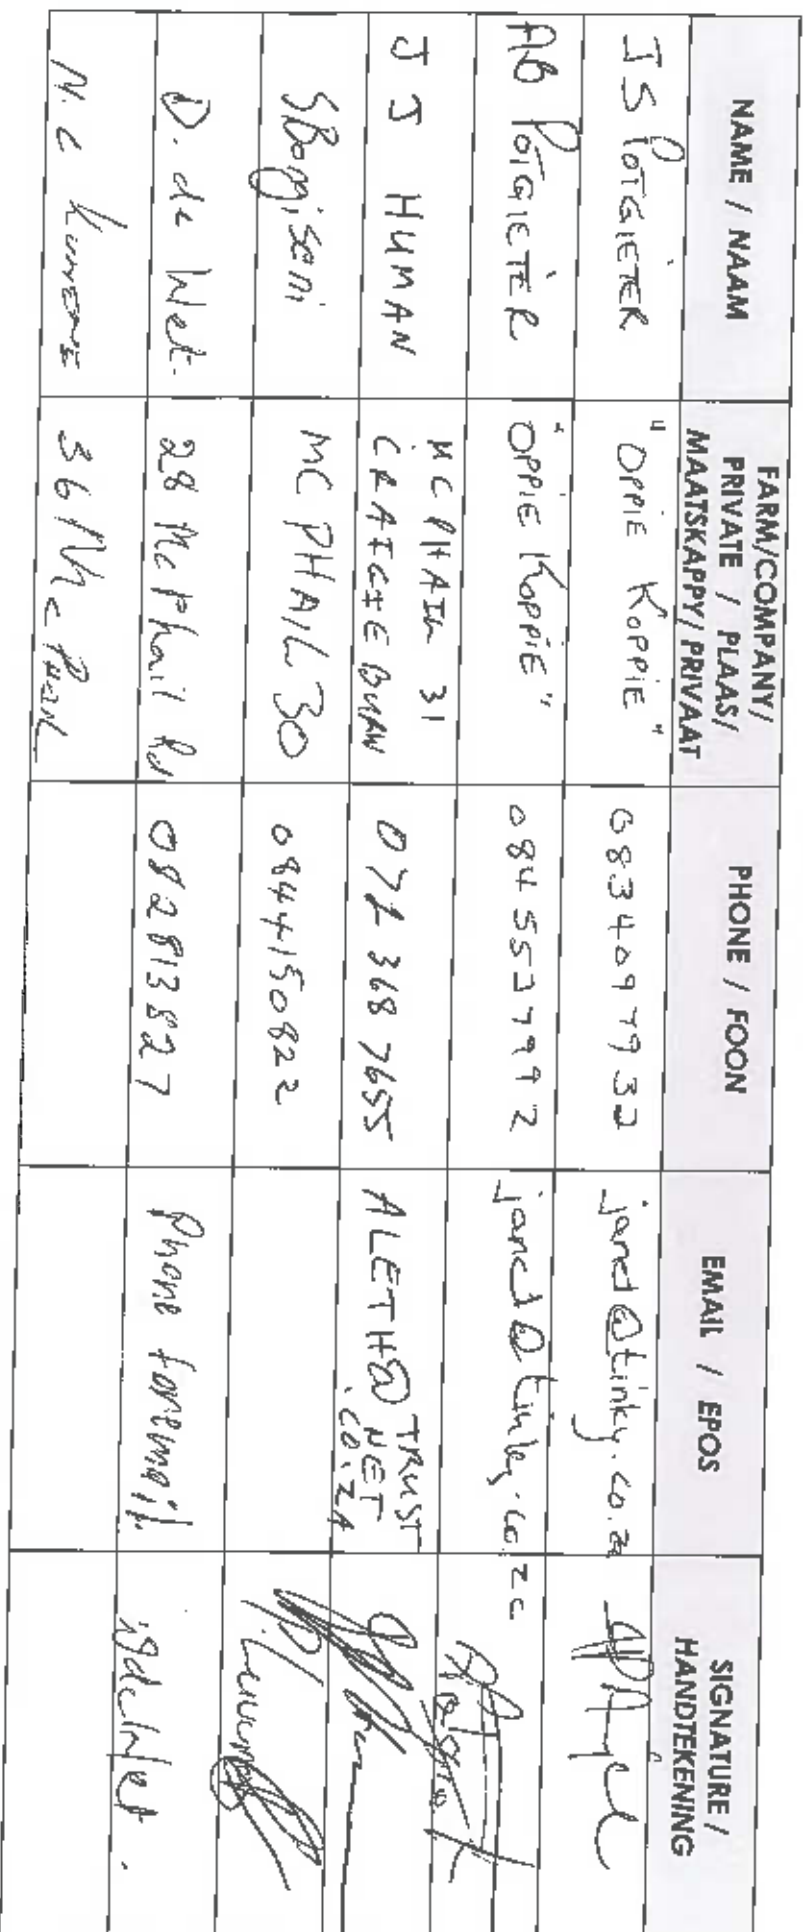 NAME / NAAM
FARM/COMPANY/
PRIVATE / PLAAS/
MAATSKAPPY/ PRIVAAT
PHONE / FOON
EMAIL / EPOS
SIGNATURE /
HANDTEKENING
JS POTGIETER
"OPPIE KOPPIE"
0834097932
janed@tinky.co.za
AB POTGIETER
"OPPIE KOPPIE"
0845527992
J J HUMAN
MCPHAIL 31
CRAIGIEBURN
072 368 7655
ALETH@TRUST
NET
.CO.ZA
SBongiseni
MC PHAIL 30
0844150822
D. de Wet.
28 McPhail Rd
082813827
Phone for email.
N.C Kunene
36 McPhail